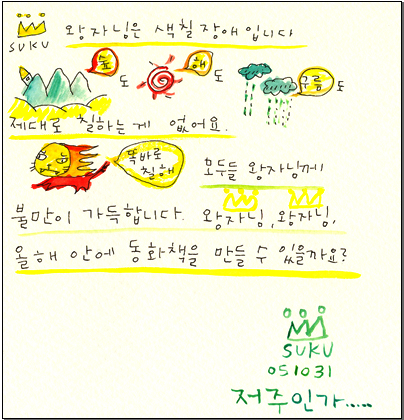 SUKU 왕자님은 색칠 장애입니다
숲도 해도 구름도
제대로 칠하는 게 없어요.
똑바로 칠해 모두들 왕자님께
불만이 가득합니다. 왕자님, 왕자님,
올해 안에 동화책을 만들 수 있을까요?
SUKU
051031
저주인가.....